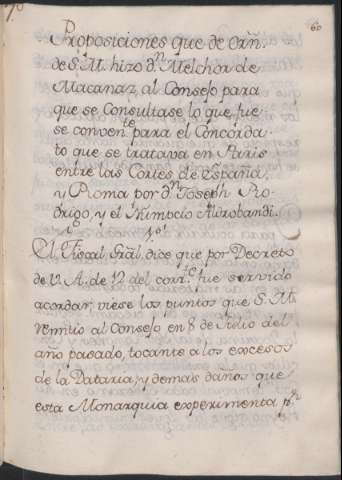 60
Proposiciones que de orñ.
de S. M. hizo dⁿ. Melchor de
Macanaz al Consejo para
que se Consultase lo que fue-
se convenᵗᵉ para el Concorda-
to que se tratava en Paris
entre las Cortes de España,
y Roma por dⁿ Joseph Ro-
drigo, y el Numpcio Aldrobandi.
1º.
El Fiscal Grãl, dice que por Decreto
de V. A. de 12 del corr.ᵗᵉ fue servido
acordar, viese los puntos que S. M.
remitio al Consejo en 8 de Julio del
año pasado, tocante a los excesos
de la Dataria, y demas daños que
esta Monarquia experimenta pʳ